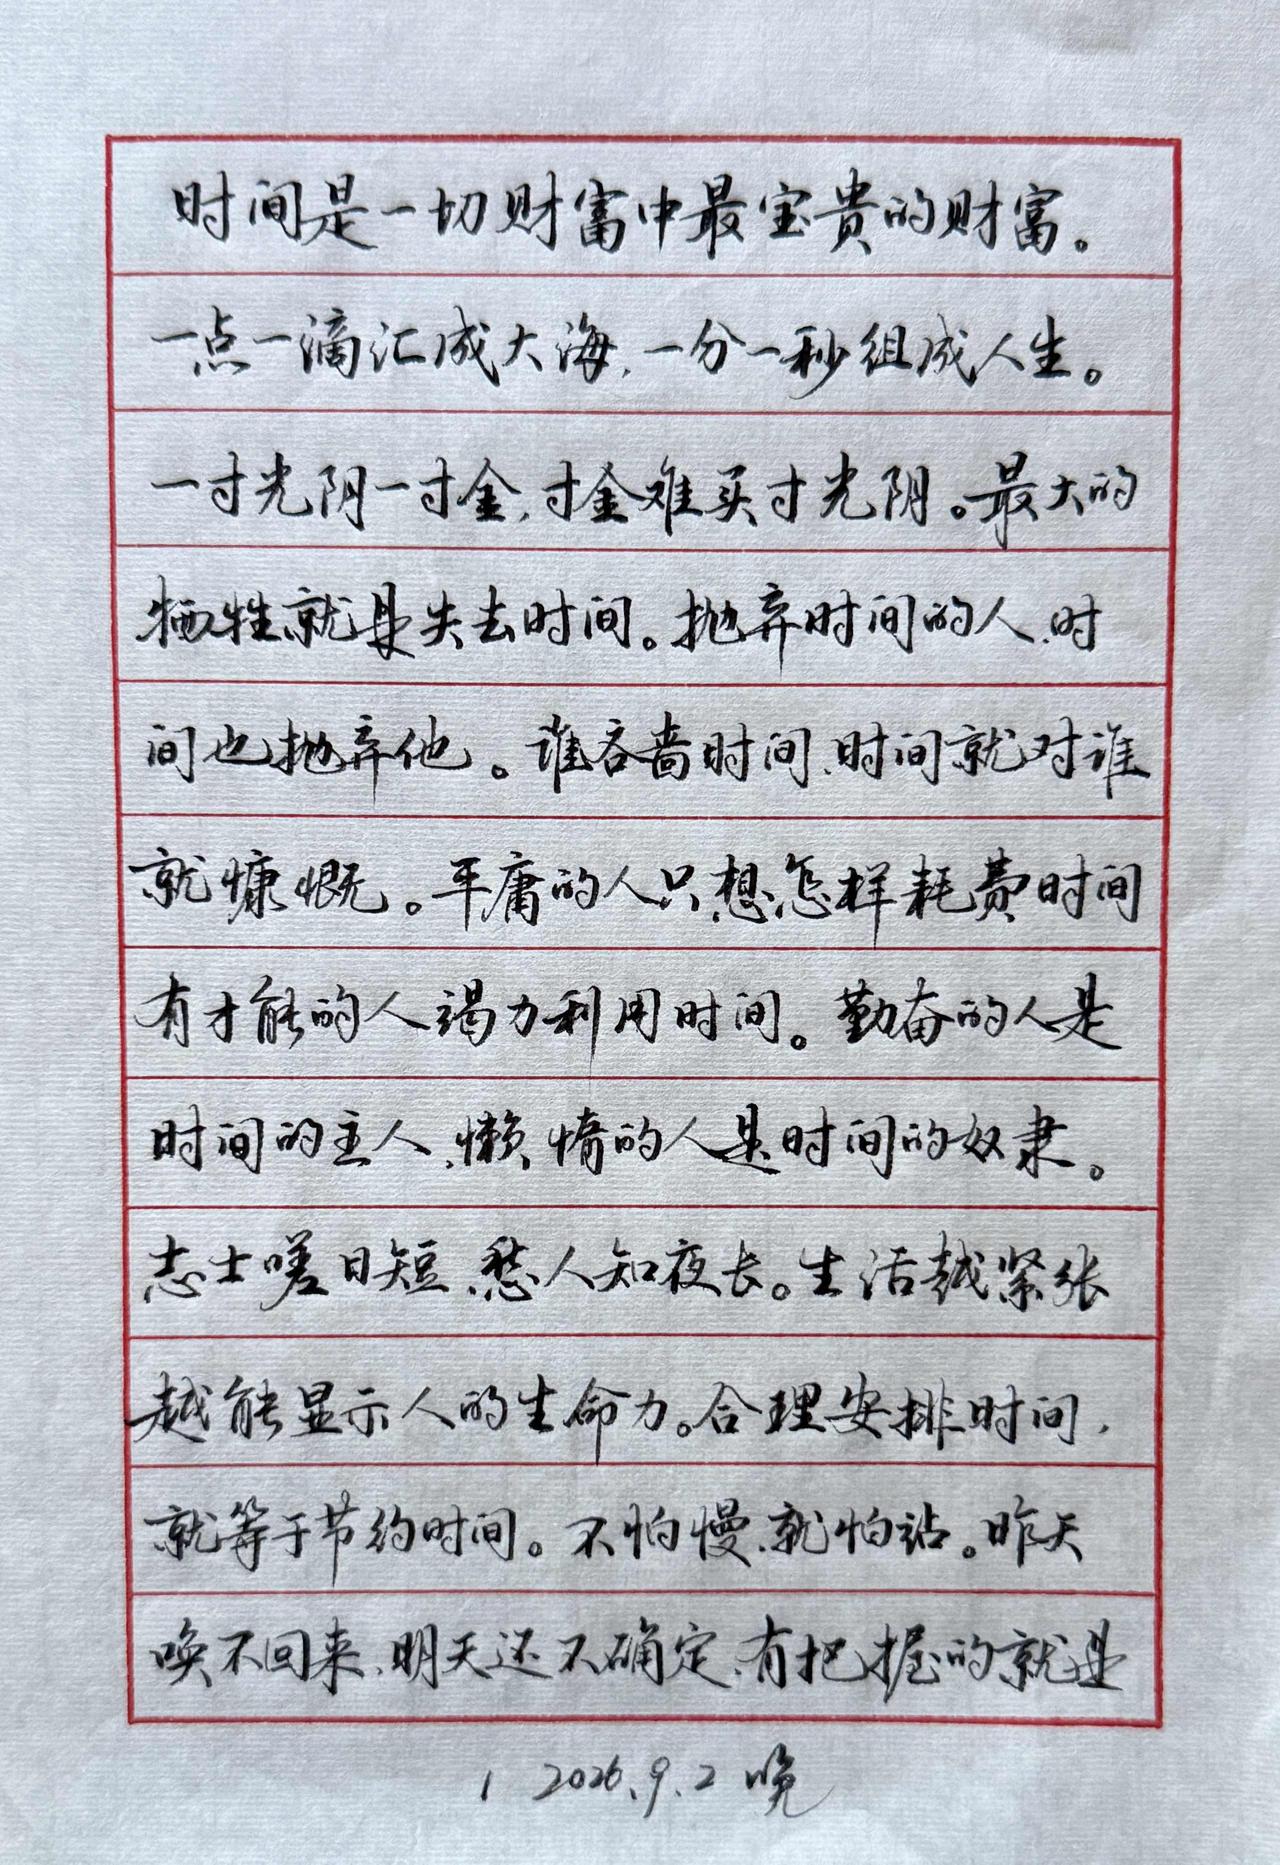 时间是一切财富中最宝贵的财富。
一点一滴汇成大海,一分一秒组成人生。
一寸光阴一寸金,寸金难买寸光阴。最大的
牺牲就是失去时间。抛弃时间的人、时
间也抛弃他。谁吝啬时间、时间就对谁
就慷慨。平庸的人只想怎样耗费时间
有才能的人竭力利用时间。勤奋的人是
时间的主人、懒惰的人是时间的奴隶。
志士嗟日短、愁人知夜长。生活越紧张
越能显示人的生命力。合理安排时间,
就等于节约时间。不怕慢、就怕站。昨天
唤不回来、明天还不确定、有把握的就是
1 2026.9.2 晚